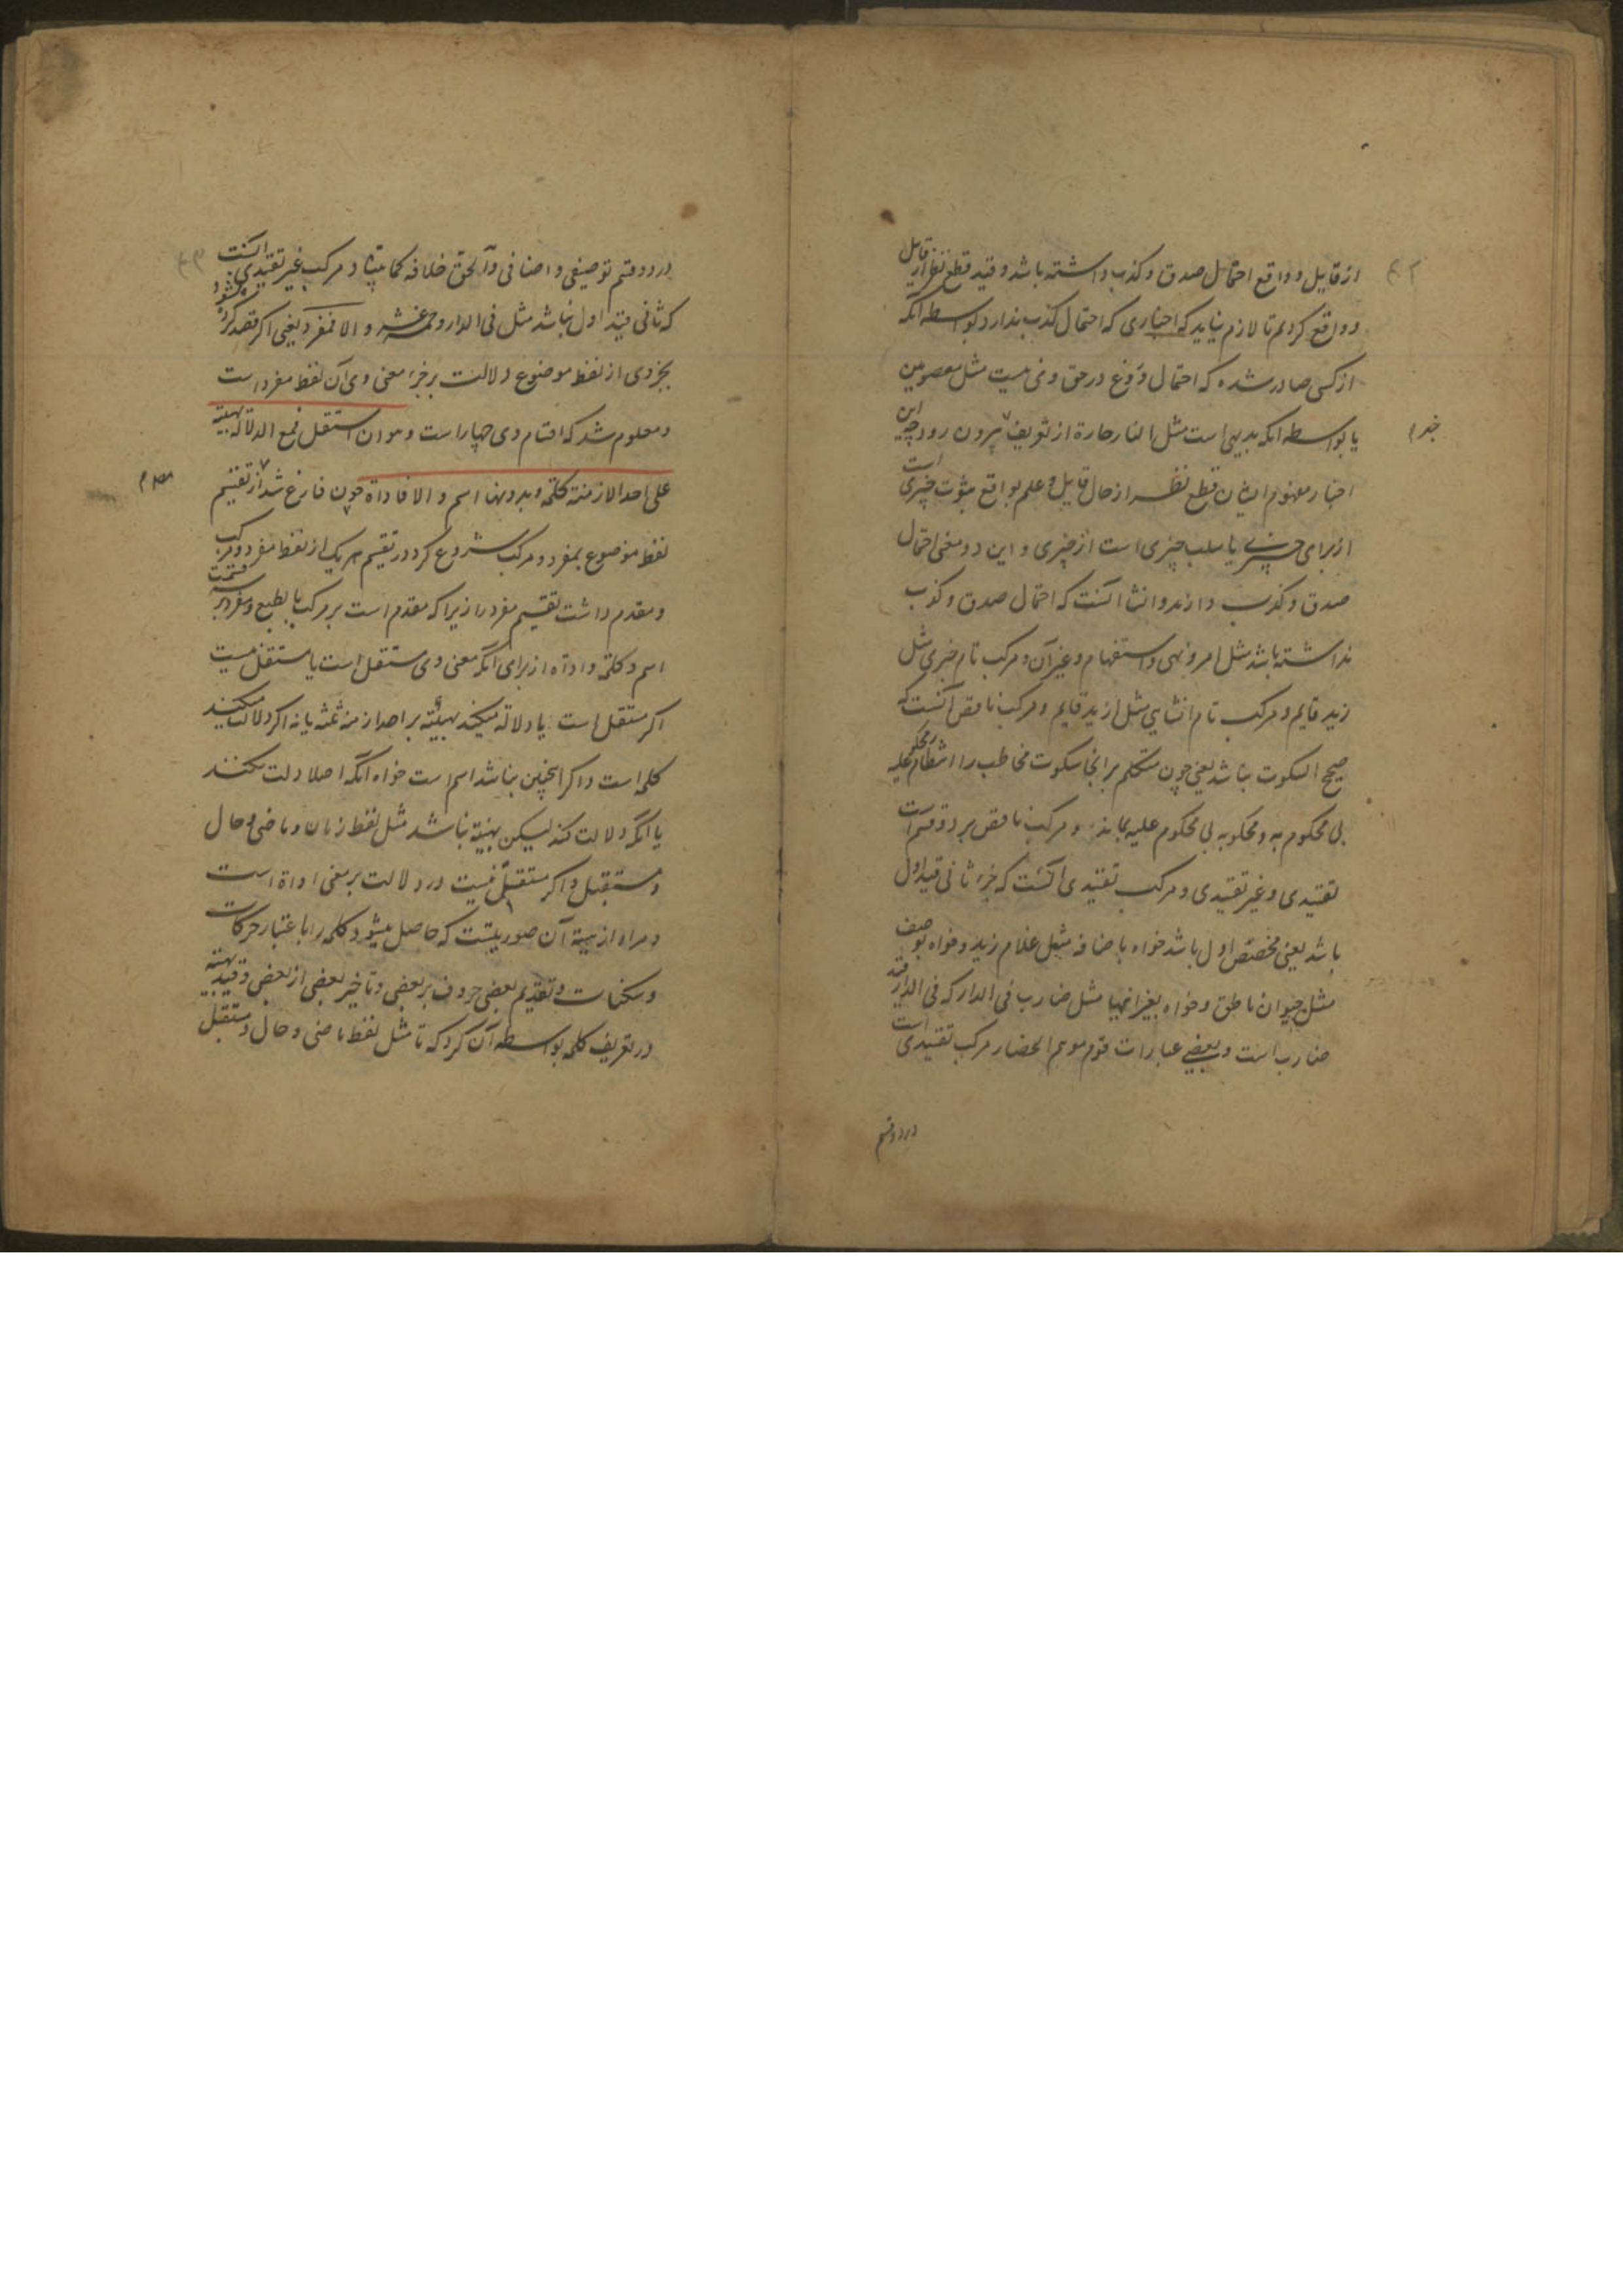 از قایل و واقع احتمال صدق و کذب داشته باشد و قید قطع نظر از قایل
و واقع کردیم تا لازم نیاید که اخباری که احتمال کذب ندارد بواسطه آنکه
از کسی صادر شده که احتمال دروغ در حق وی نیست مثل معصومین
یا بواسطه آنکه بدیهی است مثل النار حارة از تعریف بیرون رود چه این
اخبار مفهوم ایشان قطع نظر از حال قایل و علم بواقع ثبوت چیزی است
از برای چیزی یا سلب چیزی است از چیزی و این دو معنی احتمال
صدق و کذب دارند و انشا آنست که احتمال صدق و کذب
نداشته باشد مثل امر و نهی و استفهام و غیر آن و مرکب تام خبری مثل
زید قایم و مرکب تام انشایی مثل ازید قایم و مرکب ناقص آنست که
صحیح السکوت نباشد یعنی چون متکلم بر آنجا سکوت مخاطب را انتظار محکوم علیه
بی محکوم به و محکوم به بی محکوم علیه بماند و مرکب ناقص بر دو قسم است
تقییدی و غیر تقییدی و مرکب تقییدی آنست که جزء ثانی قید اول
باشد یعنی مخصص اول باشد خواه باضافه مثل غلام زید و خواه بوصف
مثل حیوان ناطق و خواه بغیر اینها مثل ضارب فی الدار که فی الدار قید
ضارب است و بعضی عبارات قوم موهم انحصار مرکب تقییدی است
در دو قسم
در دو قسم توصیفی و اضافی و الحق خلافه کما بینا و مرکب غیر تقییدی آنست
که ثانی قید اول نباشد مثل فی الدار و خمسة عشر و الا فمفرد یعنی اگر قصد کرده نشود
بجزوی از لفظ موضوع دلالت بر جزء معنی وی آن لفظ مفرد است
و معلوم شد که اقسام وی چهار است و هو ان استقل فمع الدلالة بهیئته
علی احد الازمنة کلمة و بدونها اسم و الا فاداة چون فارغ شد از تقسیم
لفظ موضوع بمفرد و مرکب شروع کرد در تقسیم هر یک از لفظ مفرد و مرکب
و مقدم داشت تقسیم مفرد را زیرا که مقدم است بر مرکب بالطبع و مفرد بر سه قسمت
اسم و کلمة و اداة از برای آنکه معنی وی مستقل است یا مستقل نیست
اگر مستقل است یا دلالة میکند بهیئته بر احد ازمنه ثلثه یا نه اگر دلالت میکند
کلمه است و اگر اینچنین نباشد اسم است خواه آنکه اصلا دلت نکند
یا آنکه دلالت کند لیکن بهیئة نباشد مثل لفظ زمان و ماضی و حال
و مستقبل و اگر مستقل نیست در دلالت بر معنی اداة است
و مراد از هیئة آن صورتیست که حاصل میشود کلمه را باعتبار حرکات
و سکنات و تقدیم بعضی حروف بر بعضی و تاخیر بعضی از بعضی و قید بهیئته
در تعریف کلمه بواسطه آن کرد که تا مثل لفظ ماضی و حال و مستقبل